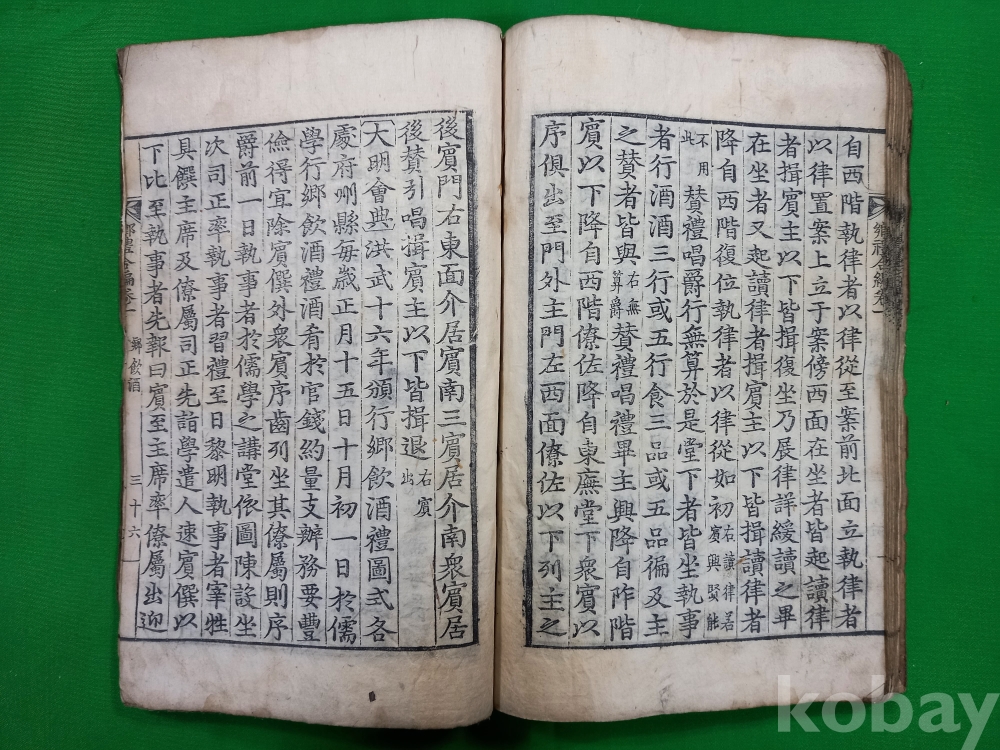 自西階執律者以律從至案前北面立執律者
以律置案上立于案傍西面在坐者皆起讀律
者揖賓主以下皆揖復坐乃展律詳緩讀之畢
在坐者又起讀律者揖賓主以下皆揖讀律者
降自西階復位執律者以律從如初右讀律若賓興賢能
不用此贊禮唱爵行無算於是堂下者皆坐執事
者行酒酒三行或五行食三品或五品徧及主
之贊者皆與右無算爵贊禮唱禮畢主興降自阼階
賓以下降自西階僚佐降自東廡堂下衆賓以
序俱出至門外主門左西面僚佐以下列主之
後賓門右東面介居賓南三賓居介南衆賓居
後贊引唱揖賓主以下皆揖退右賓出
大明會典洪武十六年頒行鄉飲酒禮圖式各
處府州縣每歲正月十五日十月初一日於儒
學行鄉飲酒禮酒肴於官錢約量支辦務要豐
儉得宜除賓僎外衆賓序齒列坐其僚屬則序
爵前一日執事者於儒學之講堂依圖陳設坐
次司正率執事者習禮至日黎明執事者宰牲
具饌主席及僚屬司正先詣學遣人速賓僎以
下比至執事者先報曰賓至主席率僚屬出迎
鄉禮合編卷一
鄉禮合編卷一 鄉飲酒 三十六
kobay